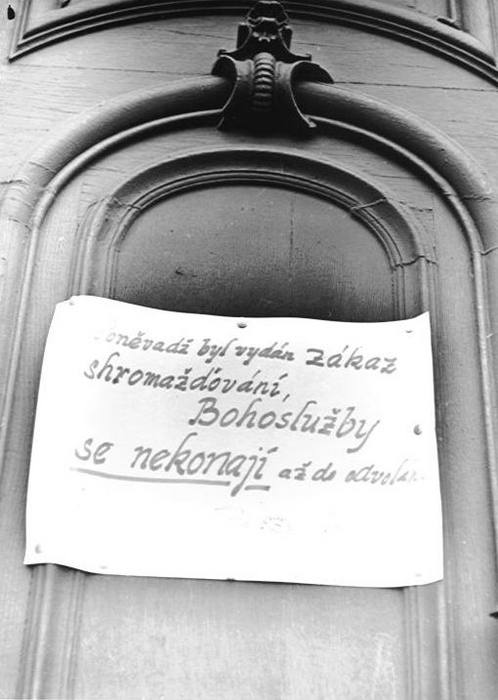 Poněvadž byl vydán zákaz
shromažďování,
Bohoslužby
se nekonají až do odvolání